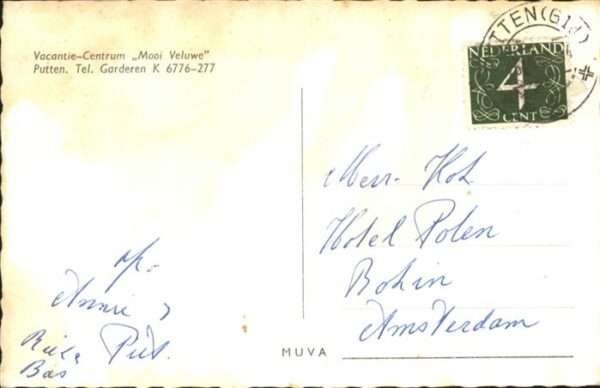 Vacantie-Centrum „Mooi Veluwe"
Putten. Tel. Garderen K 6776-277
PUTTEN (Gld)
NEDERLAND
4
CENT
Hotel Polen
Amsterdam
Annie
Piet.
Bas
MUVA